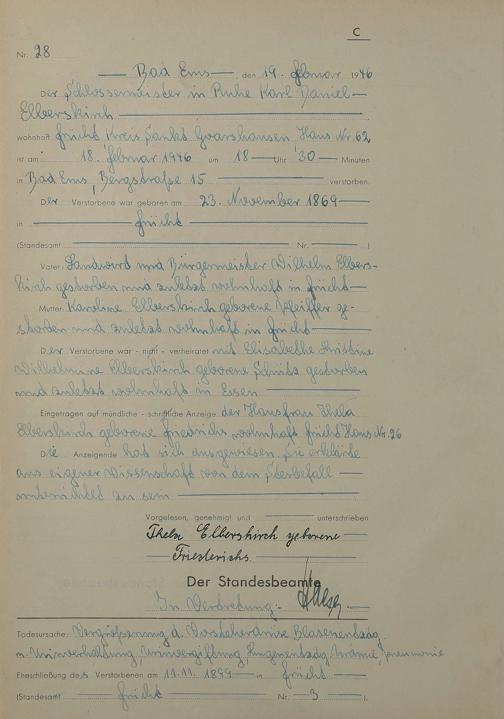 C
Nr. 28
Bad Ems, den 19. Februar 1946
Der Schlossermeister in Ruhe Karl Daniel
Elberskirch
wohnhaft Frücht Kreis Sankt Goarshausen Haus Nr. 62
ist am 18. Februar 1946 um 18 Uhr 30 Minuten
in Bad Ems, Bergstraße 15 verstorben.
Der Verstorbene war geboren am 23. November 1869
in Frücht
(Standesamt Nr. )
Vater: Landwirt und Bürgermeister Wilhelm Elbers-
kirch gestorben und zuletzt wohnhaft in Frücht
Mutter: Karoline Elberskirch geborene Pfeiffer ge-
storben und zuletzt wohnhaft in Frücht
Der Verstorbene war - nicht - verheiratet mit Elisabethe Kristine
Wilhelmine Elberskirch geborene Schütz gestorben
und zuletzt wohnhaft in Essen
Eingetragen auf mündliche - schriftliche Anzeige der Hausfrau Thela
Elberskirch geborene Friedrichs wohnhaft Frücht Haus Nr. 26
Die Anzeigende hat sich ausgewiesen. Sie erklärte
aus eigener Wissenschaft von dem Sterbefall
unterrichtet zu sein
Vorgelesen, genehmigt und unterschrieben
Thela Elberskirch geborene
Friederichs
Der Standesbeamte
In Vertretung:
Todesursache: Vergrößerung d. Vorsteherdrüse Blasenentzdg.
u. Urinverhaltung, Urinvergiftung, Lungenentzdg. Urämie, pneumonie
Eheschließung des Verstorbenen am 11.11. 1899 in Frücht
(Standesamt Frücht Nr. 3 ).